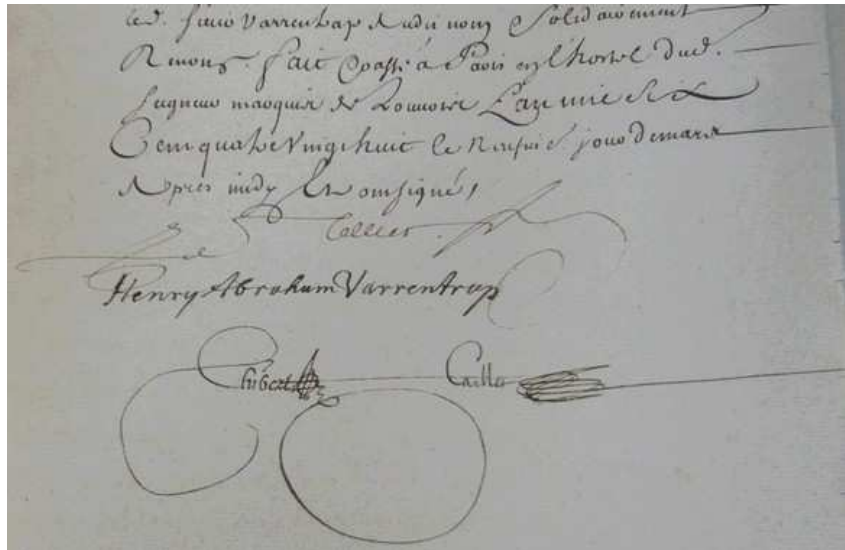 led. sieur Varrentrap audit nom Solidairement
Renonç. fait & passé à Paris en l'hostel dud.
seigneur marquis de Louvois L'an mil Six
Cens quatre vingt huit le jour de mars
Apres midy Et ont signé,
Le Tellier
Henry Abraham Varrentrap
Thibert Caillet